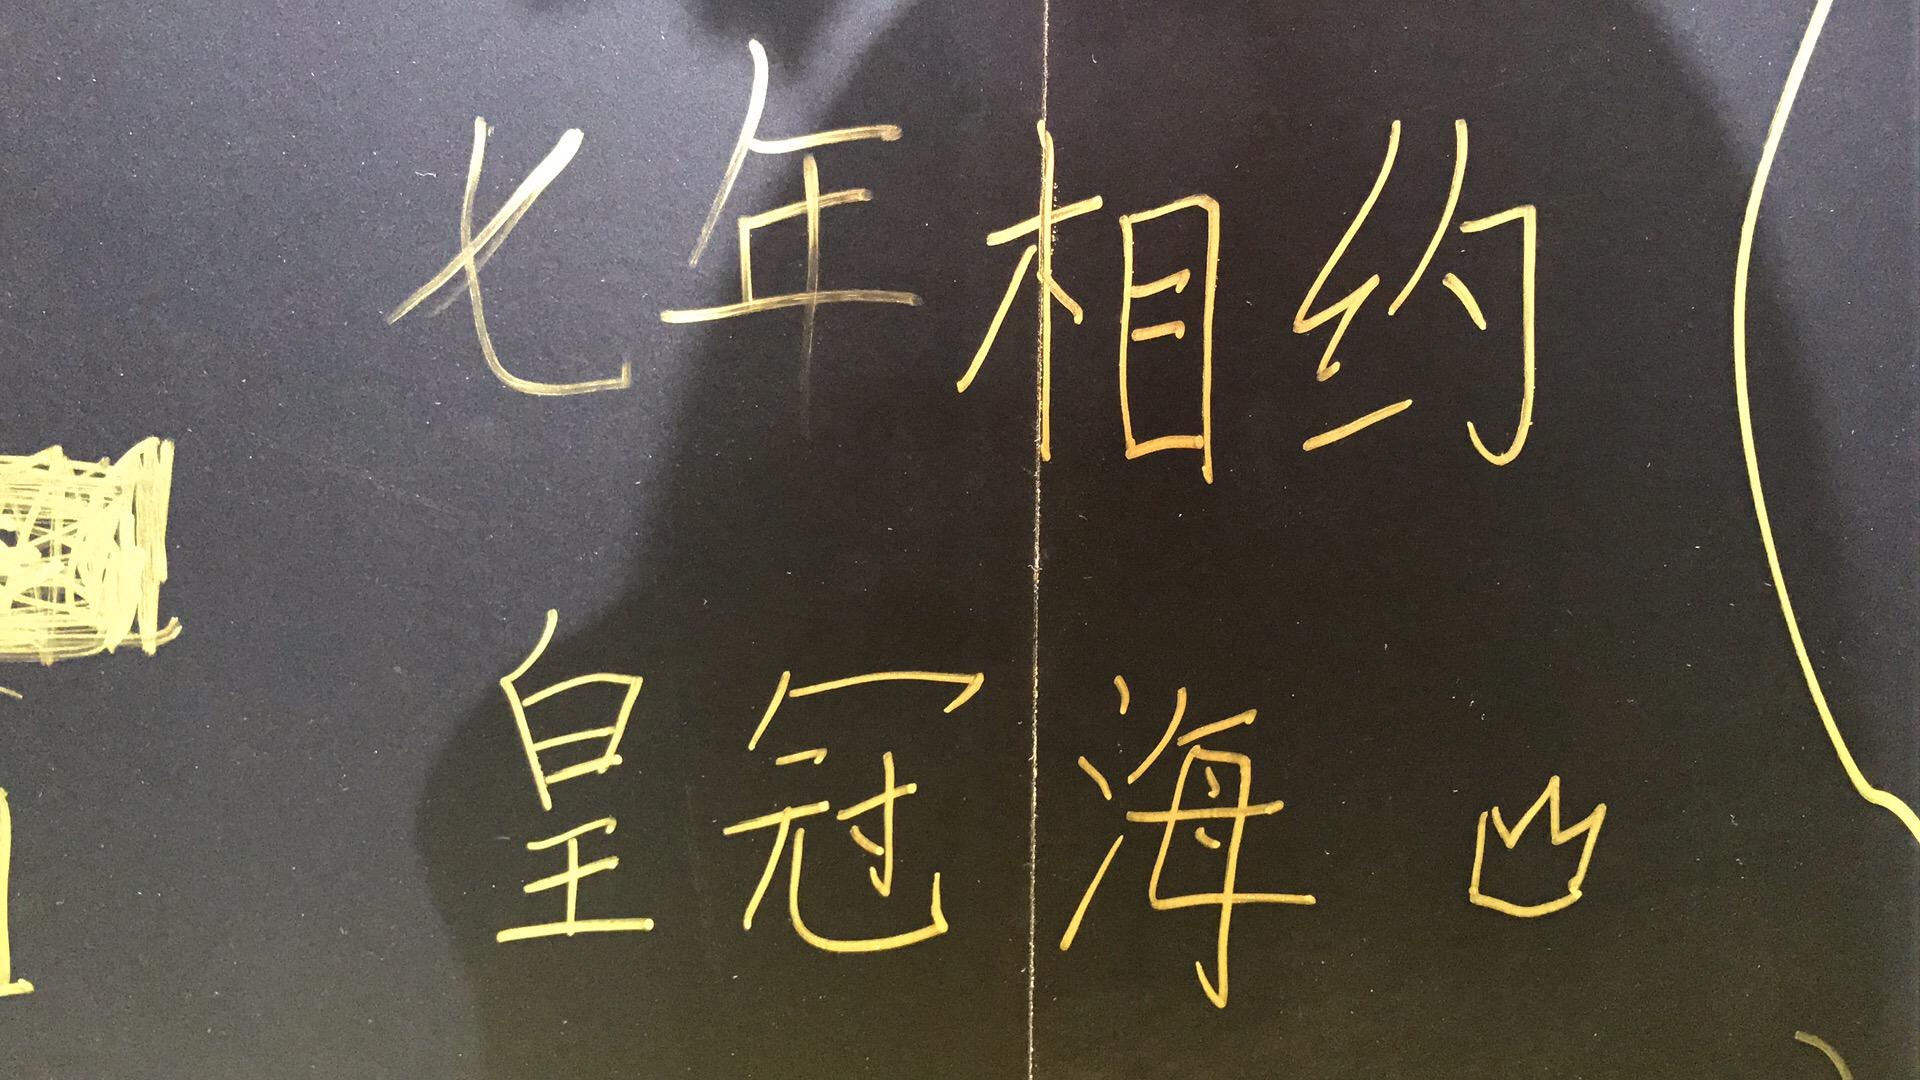 七年相约
皇冠海